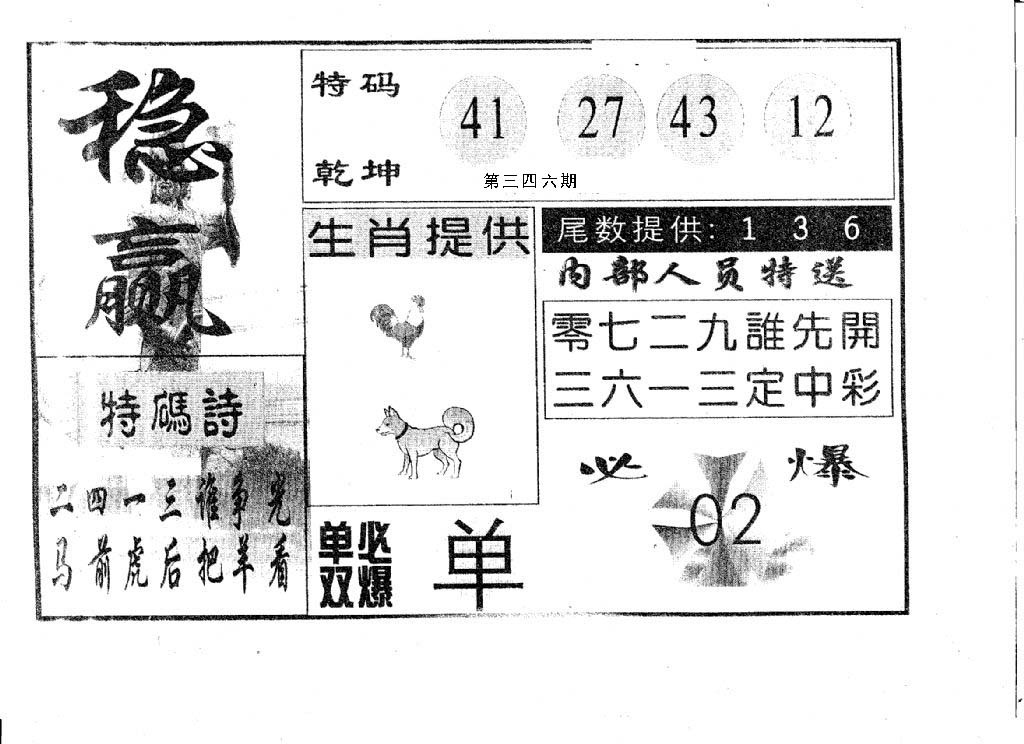 稳赢
特码
乾坤
41 27 43 12
第三四六期
生肖提供
尾数提供: 1 3 6
内部人员特送
零七二九誰先開
三六一三定中彩
特碼詩
二四一三谁争光
马前虎后把羊看
单双
必爆
单
必爆
02